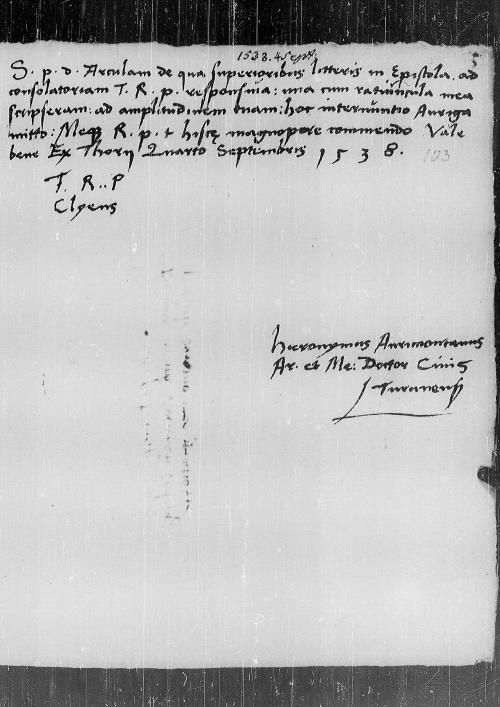 1538. 4 Sept.
S. p. d. Arculam de qua superioribus litteris in Epistola ad
consolatoriam T. R. p. responsiua: una cum ratiuncula mea
scripseram: ad amplitudinem tuam: hoc internuntio Auriga
mitto: Meque R. p. t hisce magnopere commendo Vale
bene Ex Thorn Quarto Septembris 1538.
103
T. R. P
Clyens
Hieronymus Aurimontanus
Ar. et Me: Doctor Ciuis